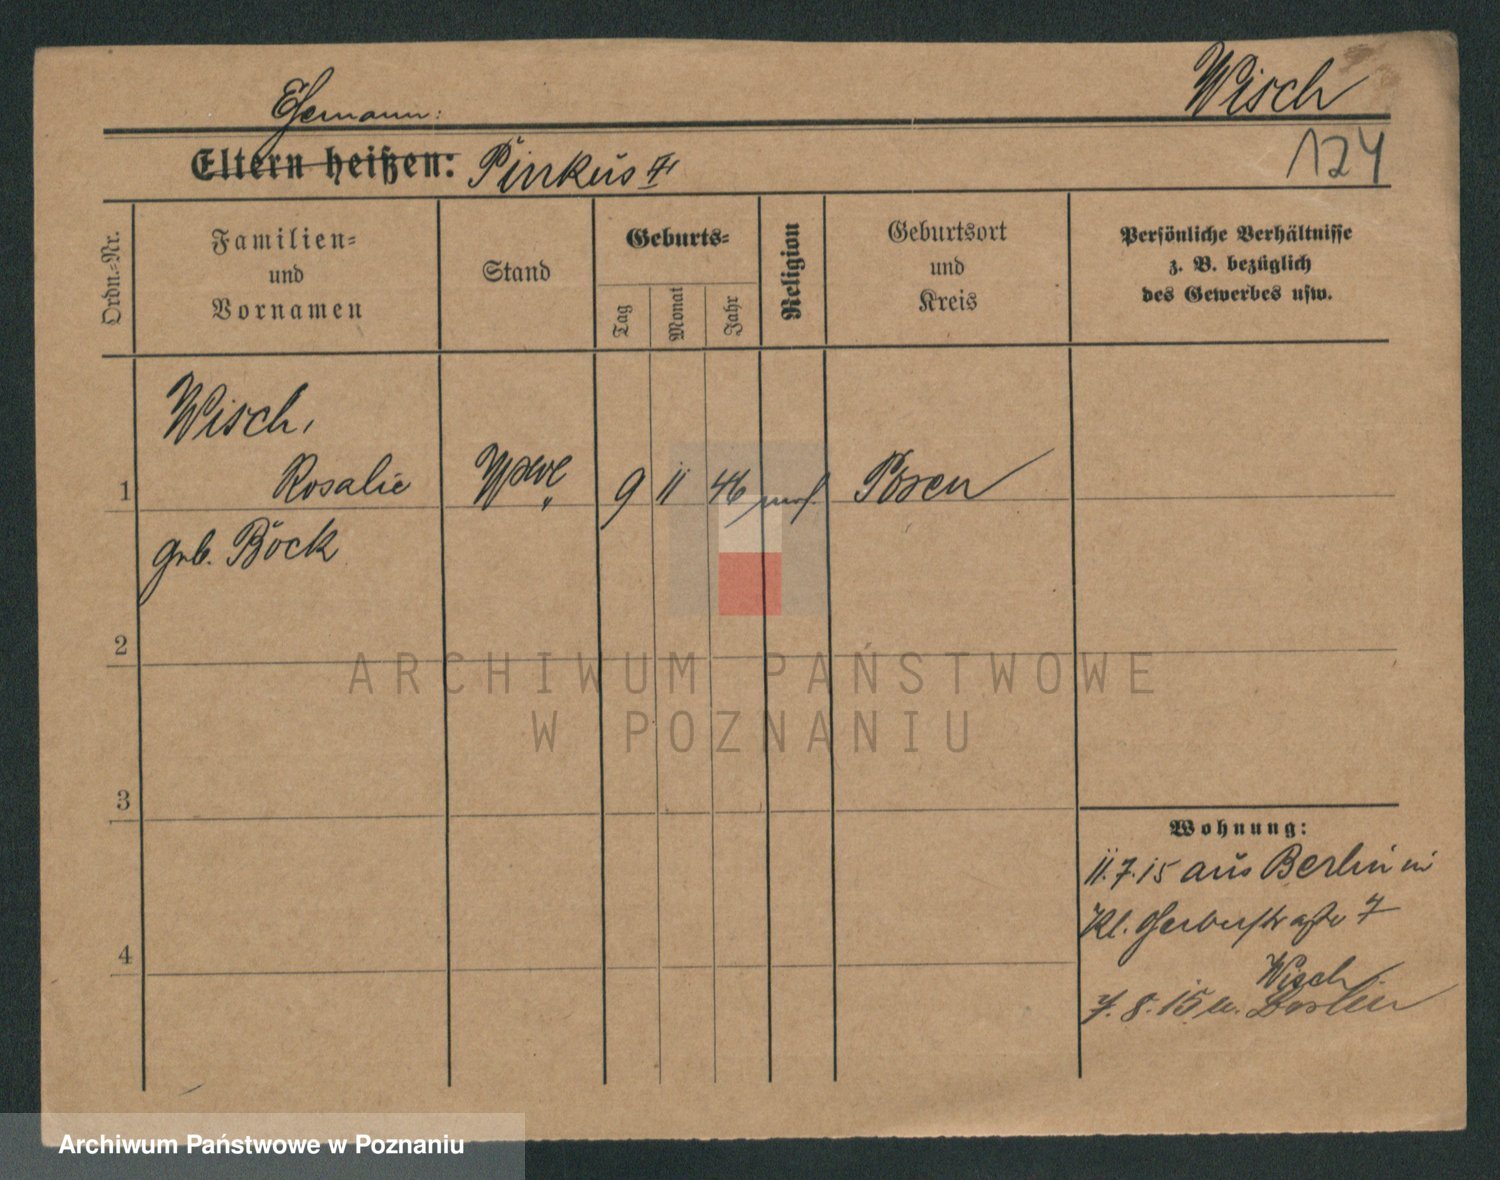 Wisch
Ehemann:
Eltern heißen: Pinkus
124
Ordn.-Nr.
Familien-
und
Vornamen
Stand
Geburts-
Tag
Monat
Jahr
Religion
Geburtsort
und
Kreis
Persönliche Verhältnisse
z. B. bezüglich
des Gewerbes usw.
Wisch,
1 Rosalie 9 11 46 mos. Posen
geb. Böck
2
3
4
Wohnung:
11.7.15 aus Berlin in
Kl. Gerberstraße 7
Wisch
7.8.15 n. Berlin
ARCHIWUM PAŃSTWOWE
W POZNANIU
Archiwum Państwowe w Poznaniu